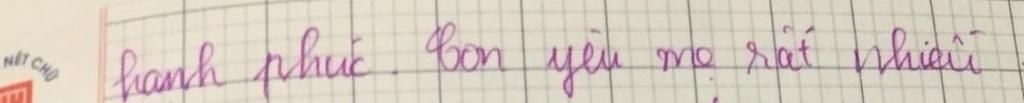 NÉT CHỮ
hanh phuć. Con yêu mẹ rất nhiều